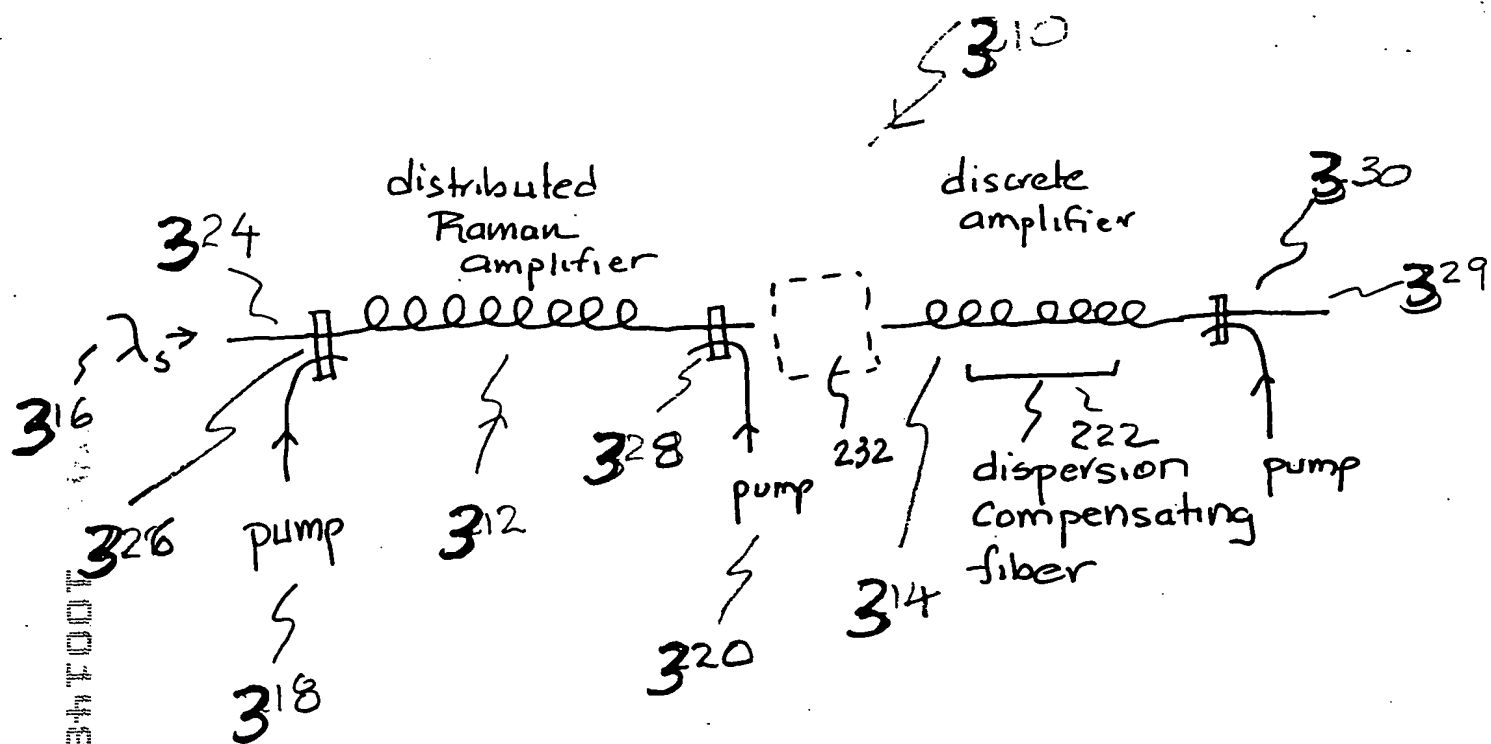 310
distributed
Raman
amplifier
discrete
amplifier
330
324
329
λs
316
328
232
222
dispersion
compensating
fiber
pump
pump
326
pump
312
314
320
318